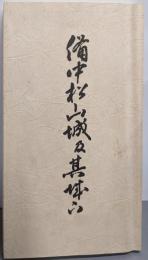 備中松山城及其城下